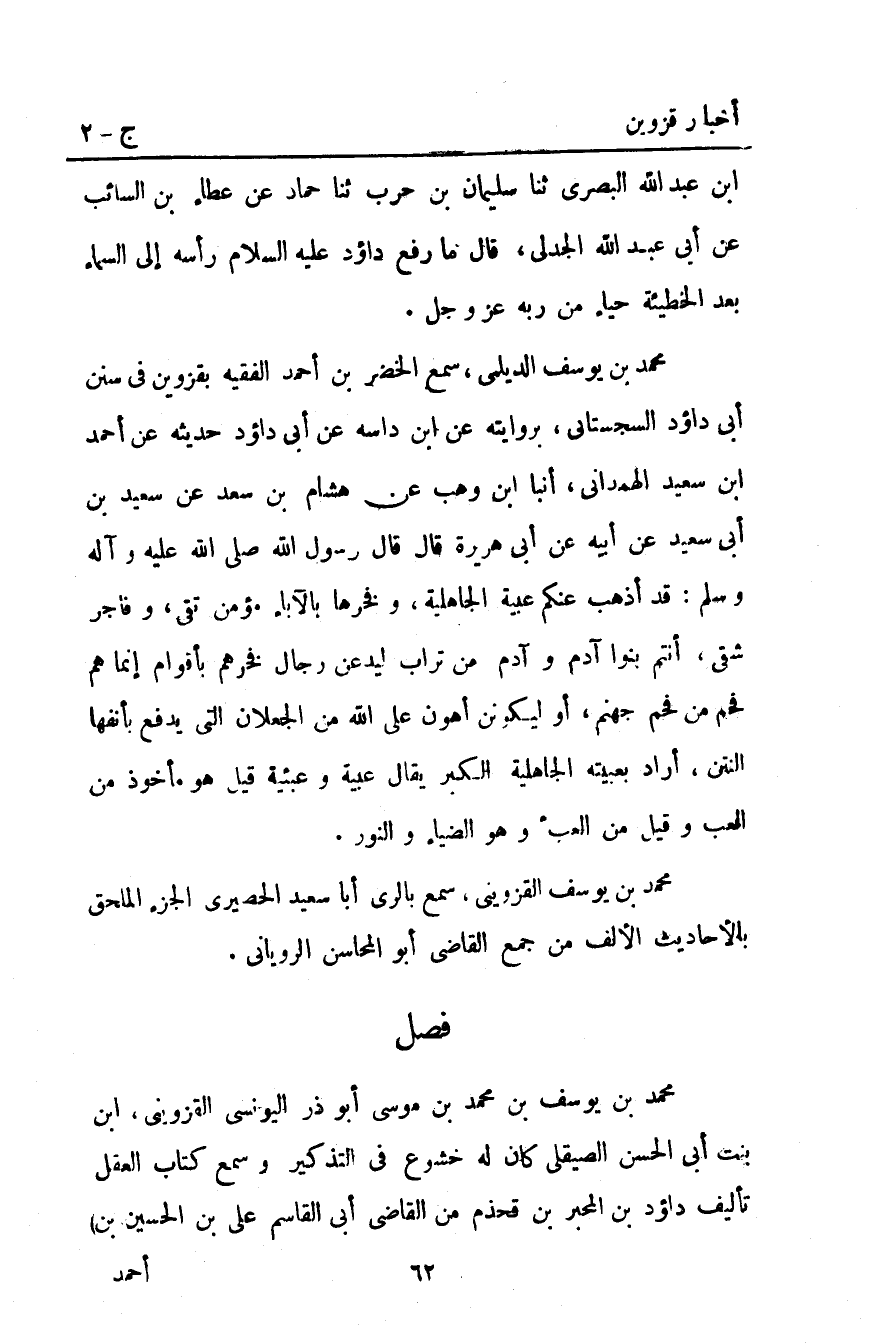 أخبار قزوين ج – ٢
ابن عبد الله البصرى ثنا سليمان بن حرب ثنا حماد عن عطاء بن السائب
عن أبى عبد الله الجدلى، قال ما رفع داؤد عليه السلام رأسه إلى السماء
بعد الخطيئة حياء من ربه عز و جل .
محمد بن يوسف الديلمى، سمع الخضر بن أحمد الفقيه بقزوين فى سنن
أبى داؤد السجستانى، بروايته عن ابن داسه عن أبى داؤد حديثه عن أحمد
ابن سعيد الهمدانى، أنبا ابن وهب عن هشام بن سعد عن سعيد بن
أبى سعيد عن أبيه عن أبى هريرة قال قال رسول الله صلى الله عليه و آله
و سلم : قد أذهب عنكم عبية الجاهلية، و فخرها بالآباء مؤمن تقى، و فاجر
شقى، أنتم بنوا آدم و آدم من تراب ليدعن رجال فخرهم بأقوام إنما هم
فحم من فحم جهنم، أو ليكونن أهون على الله من الجعلان التى يدفع بأنفها
النتن، أراد بعبيته الجاهلية الكبر يقال عبية و عبئية قيل هو مأخوذ من
العب و قيل من العبء و هو الضياء و النور .
محمد بن يوسف القزوينى، سمع بالرى أبا سعيد الحصيرى الجزء الملحق
بالأحاديث الألف من جمع القاضى أبو المحاسن الرويانى .
فصل
محمد بن يوسف بن محمد بن موسى أبو ذر اليونسى القزوينى، ابن
بنت أبى الحسن الصيقلى كان له خشوع فى التذكير و سمع كتاب العقل
تأليف داؤد بن المحبر بن قحذم من القاضى أبى القاسم على بن الحسين بن)
٦٢ أحمد